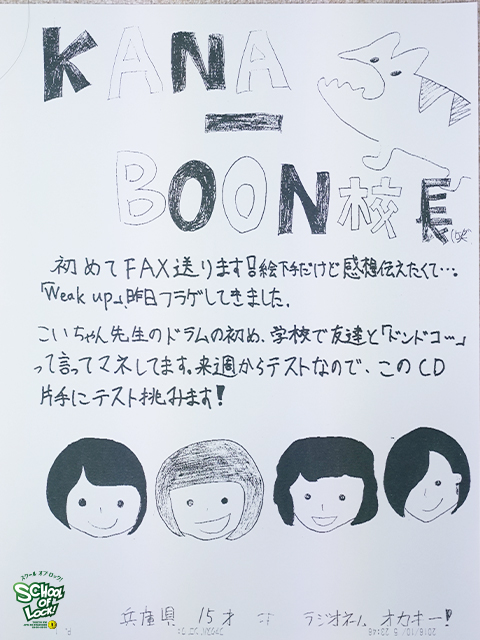 KANA
-
BOON校長
初めてFAX送ります!絵下手だけど感想伝えたくて…。
「Weak up」、昨日フラゲしてきました。
こいちゃん先生のドラムの初め、学校で友達と「ドンドコ…」
って言ってマネしてます。来週からテストなので、このCD
片手にテスト挑みます!
スクール オブ ロック!
SCHOOL OF LOCK!
兵庫県 15才 ラジオネーム オカキー!